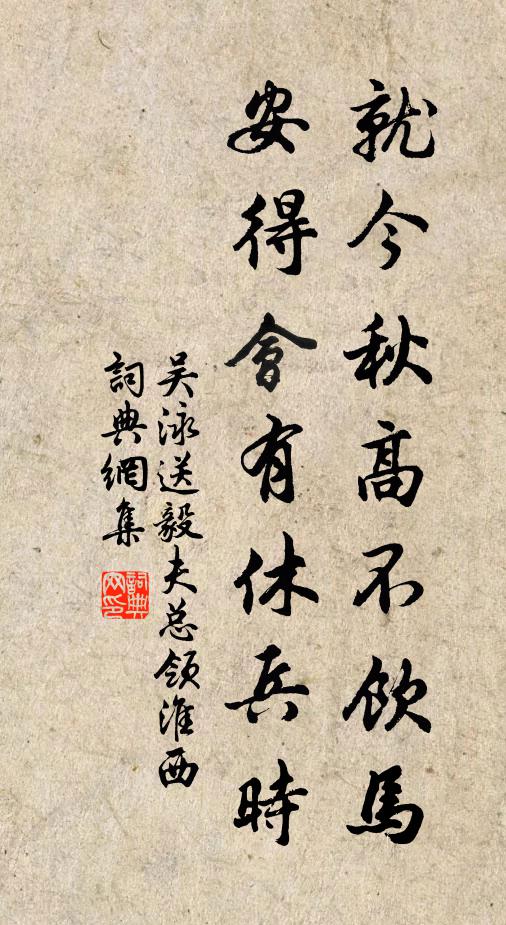 就今秋高不飲馬
安得會有休兵時
吴泳送毅夫总领淮西
詞典網集
詞典
网印